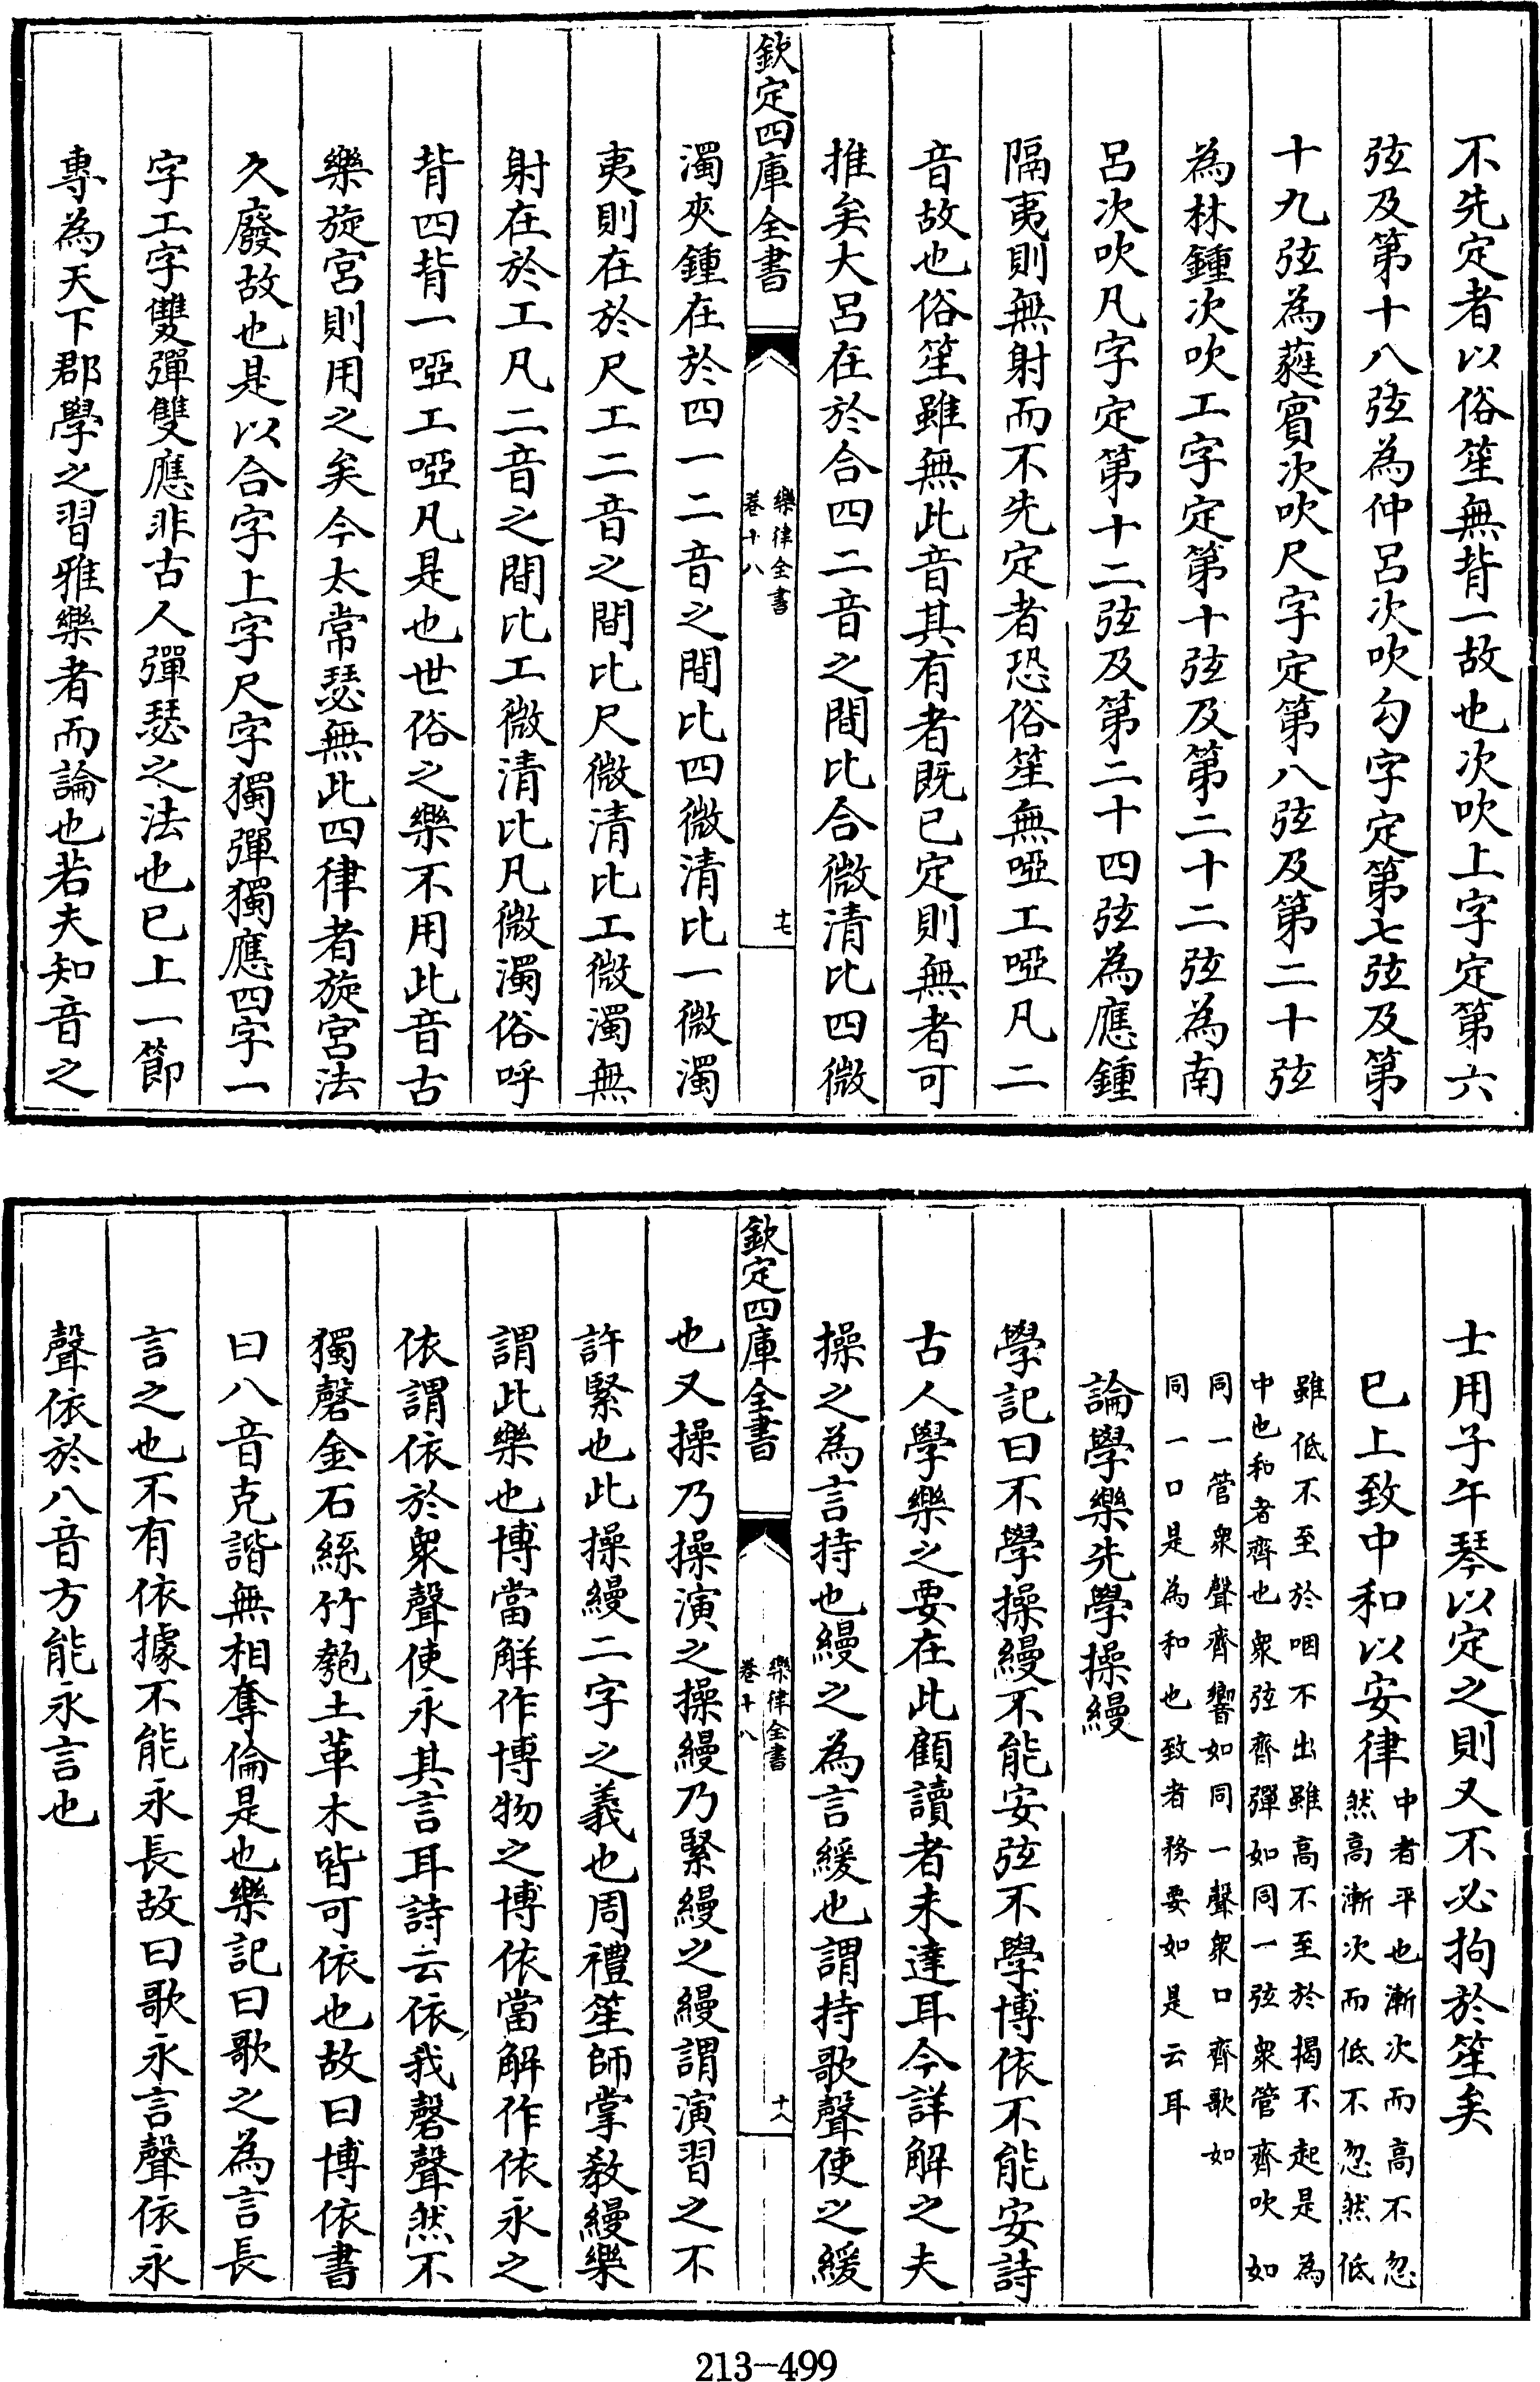 不先定者以俗笙無背一故也次吹上字定第六
弦及第十八弦為仲呂次吹勾字定第七弦及第
十九弦為蕤賓次吹尺字定第八弦及第二十弦
為林鍾次吹工字定第十弦及第二十二弦為南
呂次吹凡字定第十二弦及第二十四弦為應鍾
隔夷則無射而不先定者恐俗笙無啞工啞凡二
音故也俗笙雖無此音其有者既已定則無者可
推矣大呂在於合四二音之間比合微清比四微
欽定四庫全書
樂律全書
卷十八
十七
濁夾鍾在於四一二音之間比四微清比一微濁
夷則在於尺工二音之間比尺微清比工微濁無
射在於工凡二音之間比工微清比凡微濁俗呼
背四背一啞工啞凡是也世俗之樂不用此音古
樂旋宮則用之矣今太常瑟無此四律者旋宮法
久廢故也是以合字上字尺字獨彈獨應四字一
字工字雙彈雙應非古人彈瑟之法也已上一節
專為天下郡學之習雅樂者而論也若夫知音之
士用子午琴以定之則又不必拘於笙矣
已上致中和以安律中者平也漸次而高不忽
然高漸次而低不忽然低
雖低不至於咽不出雖高不至於揭不起是為
中也和者齊也衆弦齊彈如同一弦衆管齊吹如
同一管衆聲齊響如同一聲衆口齊歌如
同一口是為和也致者務要如是云耳
論學樂先學操縵
學記曰不學操縵不能安弦不學博依不能安詩
古人學樂之要在此顧讀者未達耳今詳解之夫
操之為言持也縵之為言緩也謂持歌聲使之緩
欽定四庫全書
樂律全書
卷十八
十八
也又操乃操演之操縵乃緊縵之縵謂演習之不
許緊也此操縵二字之義也周禮笙師掌教縵樂
謂此樂也博當解作博物之博依當解作依永之
依謂依於衆聲使永其言耳詩云依我磬聲然不
獨磬金石絲竹匏土革木皆可依也故曰博依書
曰八音克諧無相奪倫是也樂記曰歌之為言長
言之也不有依據不能永長故曰歌永言聲依永
聲依於八音方能永言也
213-499